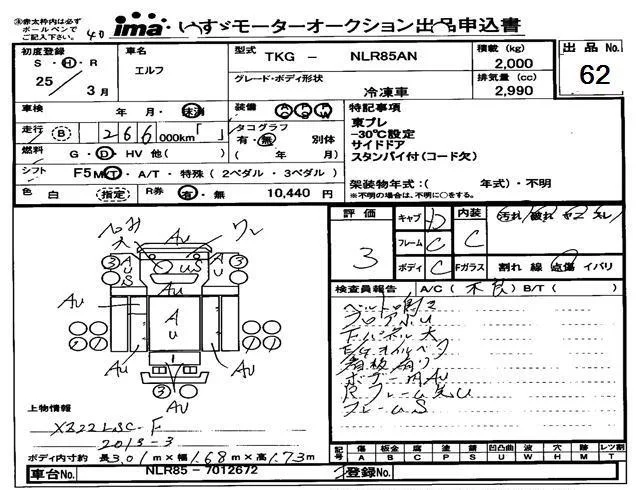 ※赤太枠内は必ずボールペンでご記入下さい。
40
ima いすゞモーターオークション出品申込書
初度登録 S・H・R 25 3月
車名 エルフ
型式 TKG - NLR85AN
グレード・ボディ形状 冷凍車
積載 (kg) 2,000
排気量 (cc) 2,990
出品No. 62
車検 年・月・抹消
走行 B 266000km「 」
燃料 G・D・HV 他( )
シフト F5 MT・A/T・特殊(2ペダル・3ペダル)
色 白 (指定) R券 有・無 10,440 円
装備 AC PS PW
タコグラフ 有・無 別体
( 年/ 月)
特記事項
東プレ
-30℃設定
サイドドア
スタンバイ付(コード欠)
架装物年式:( 年式)・不明
※不明の場合は、不明に○をする。
ワレ
AU
AU
AU
AU
AU
AU
AU
US
3
3
3
上物情報
XB22LSC-F
2013-3
ボディ内寸約 長3.01m×幅1.68m×高1.73m
評価 3
キャブ D
フレーム C
ボディ C
内装 C 汚れ/破れ ヤニ スレ
Fガラス 割れ 線 点傷 イバリ
検査員報告 A/C( 不良 )B/T( )
フロアAU
Fパネル大
E/Gオイルベタ
看板有り
ボデー内AU
Rフレーム先U
フレームS
記号 傷A 板金B 腐C 塗P 錆S 凹凸曲U 波W 穴H 跡M 汚T レツ割
車台No. NLR85-7012672
登録No.